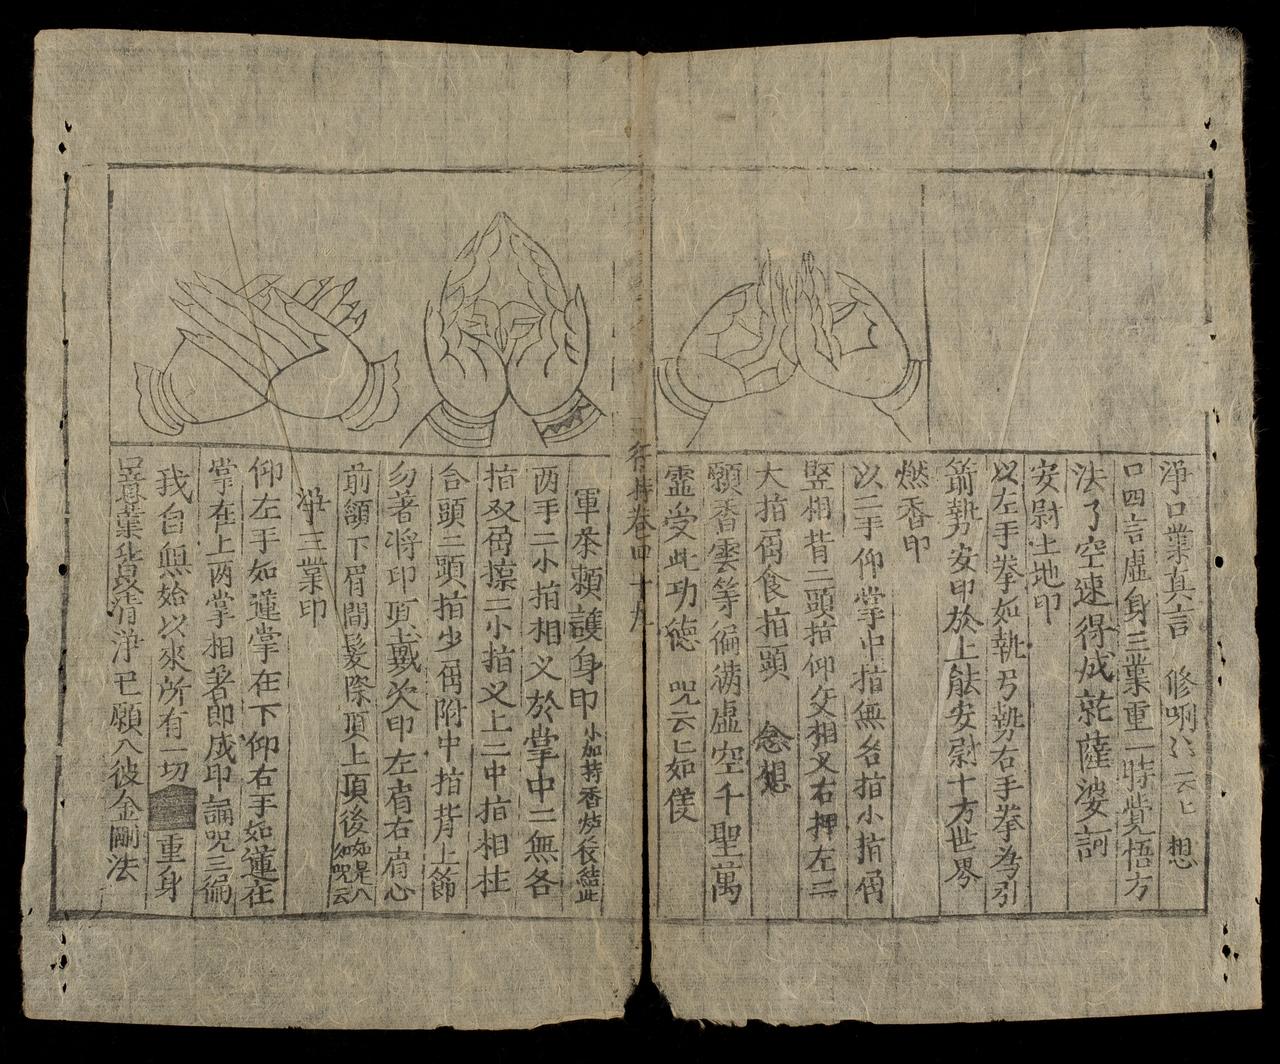 淨口業真言 修唎㳬云云 想
口四言虛身三業重一時覺悟方
法了空速得成就薩婆訶
安慰土地印
以左手拳如執弓勢右手拳為引
箭勢安印於上能安慰十方世界
燃香印
以二手仰掌中指無名指小指屈
竪相背二頭指仰父相叉右押左二
大指屈食指頭 念想
願香雲等徧滿虛空千聖萬
靈受此功德 呪云云如後
行持卷四十九
軍荼頼護身印 小加持香炉後結此
两手二小指相叉於掌中二無名
指双屈壓二小指叉上二中指相拄
合頭二頭指少屈附中指背上節
勿著將印頂上戴次印左肩右肩心
前頷下眉間髮際頂上頂後 如是八 処呪云
淨三業印
仰左手如蓮掌在下仰右手如蓮在
掌在上两掌相著即成印誦呪三徧
我自無始以來所有一切重身
口意業皆衆清淨已願入彼金剛法